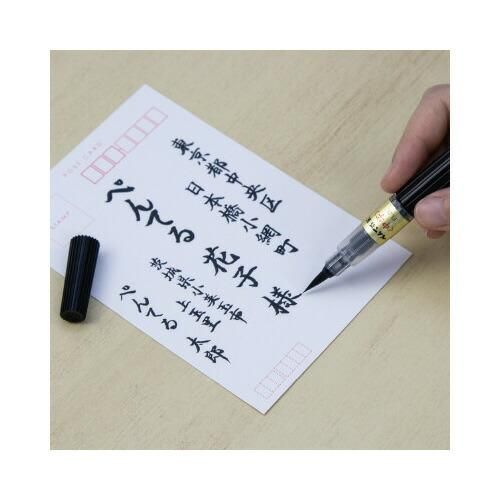 POST CARD
STAMP
東京都中央区
日本橋小網町
ぺんてる 花子 様
茨城県小美玉市
上玉里
ぺんてる 太郎